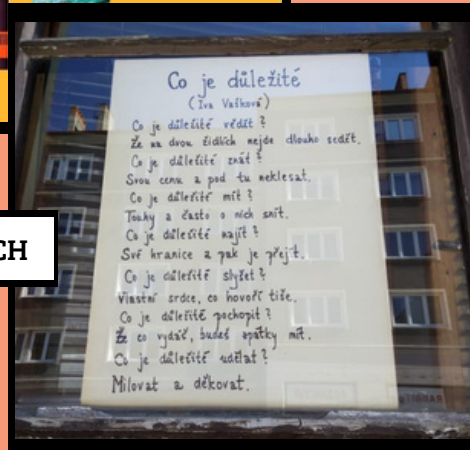 Co je důležité
(Iva Vaňková)
Co je důležité vědět?
Že na dvou židlích nejde dlouho sedět.
Co je důležité znát?
Svou cenu a pod tu neklesat.
Co je důležité mít?
Touhy a často o nich snít.
Co je důležité najít?
Své hranice a pak je přejít.
Co je důležité slyšet?
Vlastní srdce, co hovoří tiše.
Co je důležité pochopit?
Že co vydáš, budeš zpátky mít.
Co je důležité udělat?
Milovat a děkovat.
CH